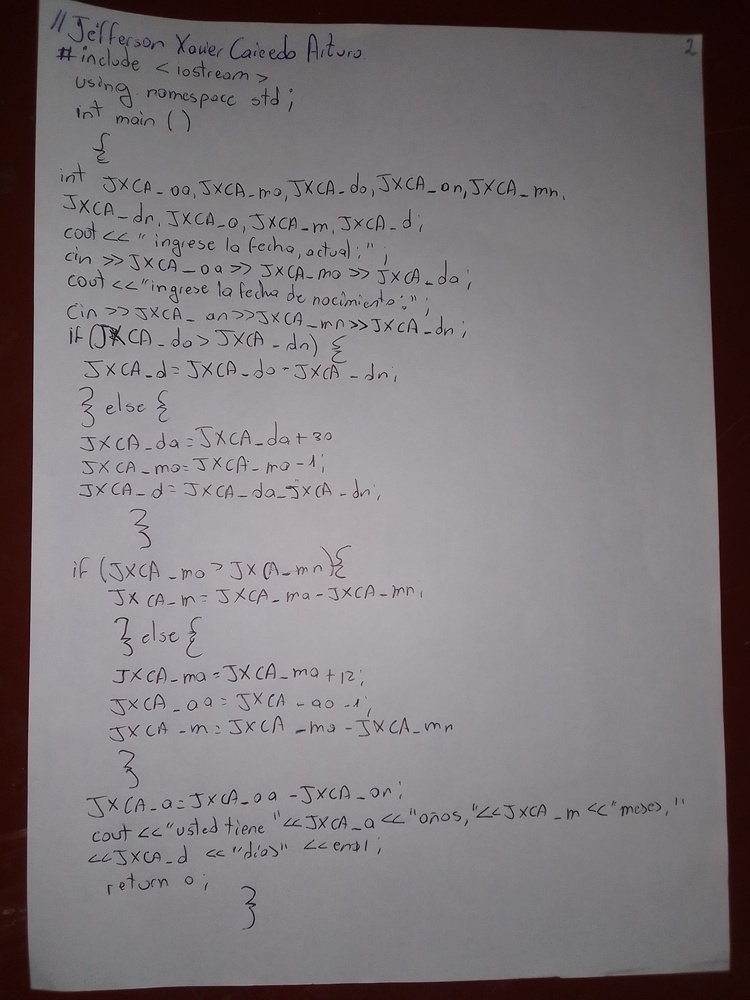 //Jefferson Xavier Caicedo Arturo
2
#include <iostream>
using namespace std;
int main ()
{
int JXCA_aa, JXCA_ma, JXCA_da, JXCA_an, JXCA_mn,
JXCA_dn, JXCA_a, JXCA_m, JXCA_d;
cout << "ingrese la fecha, actual:";
cin >> JXCA_aa >> JXCA_ma >> JXCA_da;
cout <<"ingrese la fecha de nacimiento:";
cin >> JXCA_an >> JXCA_mn >> JXCA_dn;
if (JXCA_da > JXCA_dn) {
JXCA_d = JXCA_da - JXCA_dn;
} else {
JXCA_da = JXCA_da + 30
JXCA_ma = JXCA_ma - 1;
JXCA_d = JXCA_da - JXCA_dn;
}
if (JXCA_ma > JXCA_mn){
JXCA_m = JXCA_ma - JXCA_mn;
} else {
JXCA_ma = JXCA_ma + 12;
JXCA_aa = JXCA_aa - 1;
JXCA_m = JXCA_ma - JXCA_mn
}
JXCA_a = JXCA_aa - JXCA_an;
cout << "usted tiene "<< JXCA_a << "años,"<< JXCA_m << "meses,"
<< JXCA_d << "días" << endl;
return 0;
}